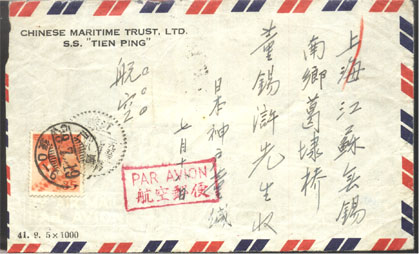 CHINESE MARITIME TRUST, LTD.
S.S. "TIEN PING"
上海江蘇無錫
南鄉葛埭桥
董錫滸先生收
日本神戶董緘
七月十
航空
PAR AVION
航空郵便
41. 9. 5×1000